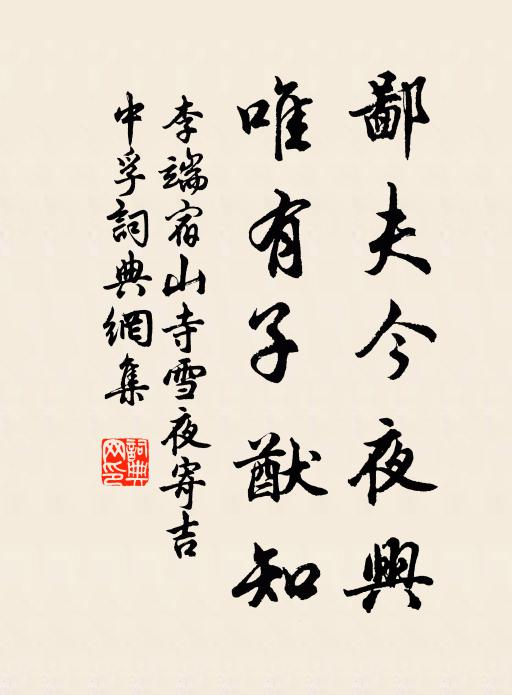 鄙夫今夜興
唯有子猷知
李端宿山寺雪夜寄吉
中孚詞典網集
詞典網印